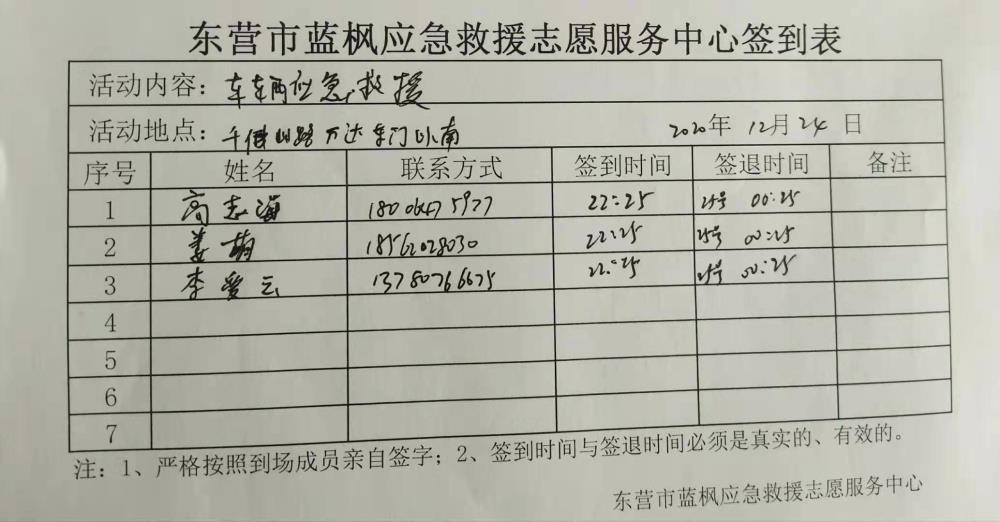 东营市蓝枫应急救援志愿服务中心签到表
活动内容：车辆应急救援
活动地点：千佛山路万达东门以南 2020年 12月 24 日
序号 姓名 联系方式 签到时间 签退时间 备注
1 高志海 22:25 25号 00:25
2 姜萌 18562028030 22:25 25号 00:25
3 李爱云 13780766675 22:25 25号 00:25
4
5
6
7
注：1、严格按照到场成员亲自签字；2、签到时间与签退时间必须是真实的、有效的。
东营市蓝枫应急救援志愿服务中心